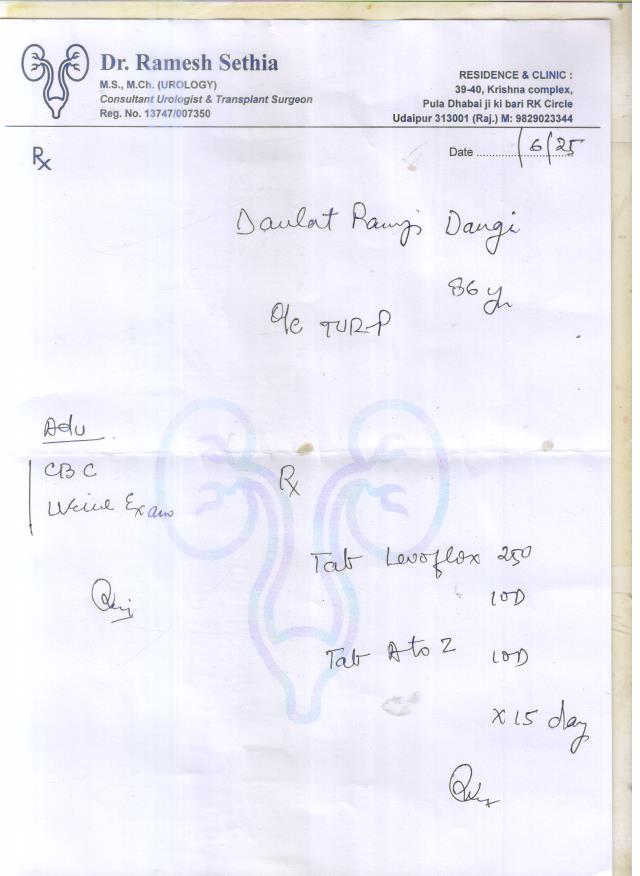 Dr. Ramesh Sethia
M.S., M.Ch. (UROLOGY)
Consultant Urologist & Transplant Surgeon
Reg. No. 13747/007350
RESIDENCE & CLINIC :
39-40, Krishna complex,
Pula Dhabai ji ki bari RK Circle
Udaipur 313001 (Raj.) M: 9829023344
Rx
Date /6/25
Daulat Ramji Dangi
86 yr
O/c TUR-P
Adv
CBC
Urine Exam
Rx
Tab Levoflox 250
10D
Tab A to Z 10D
x 15 day